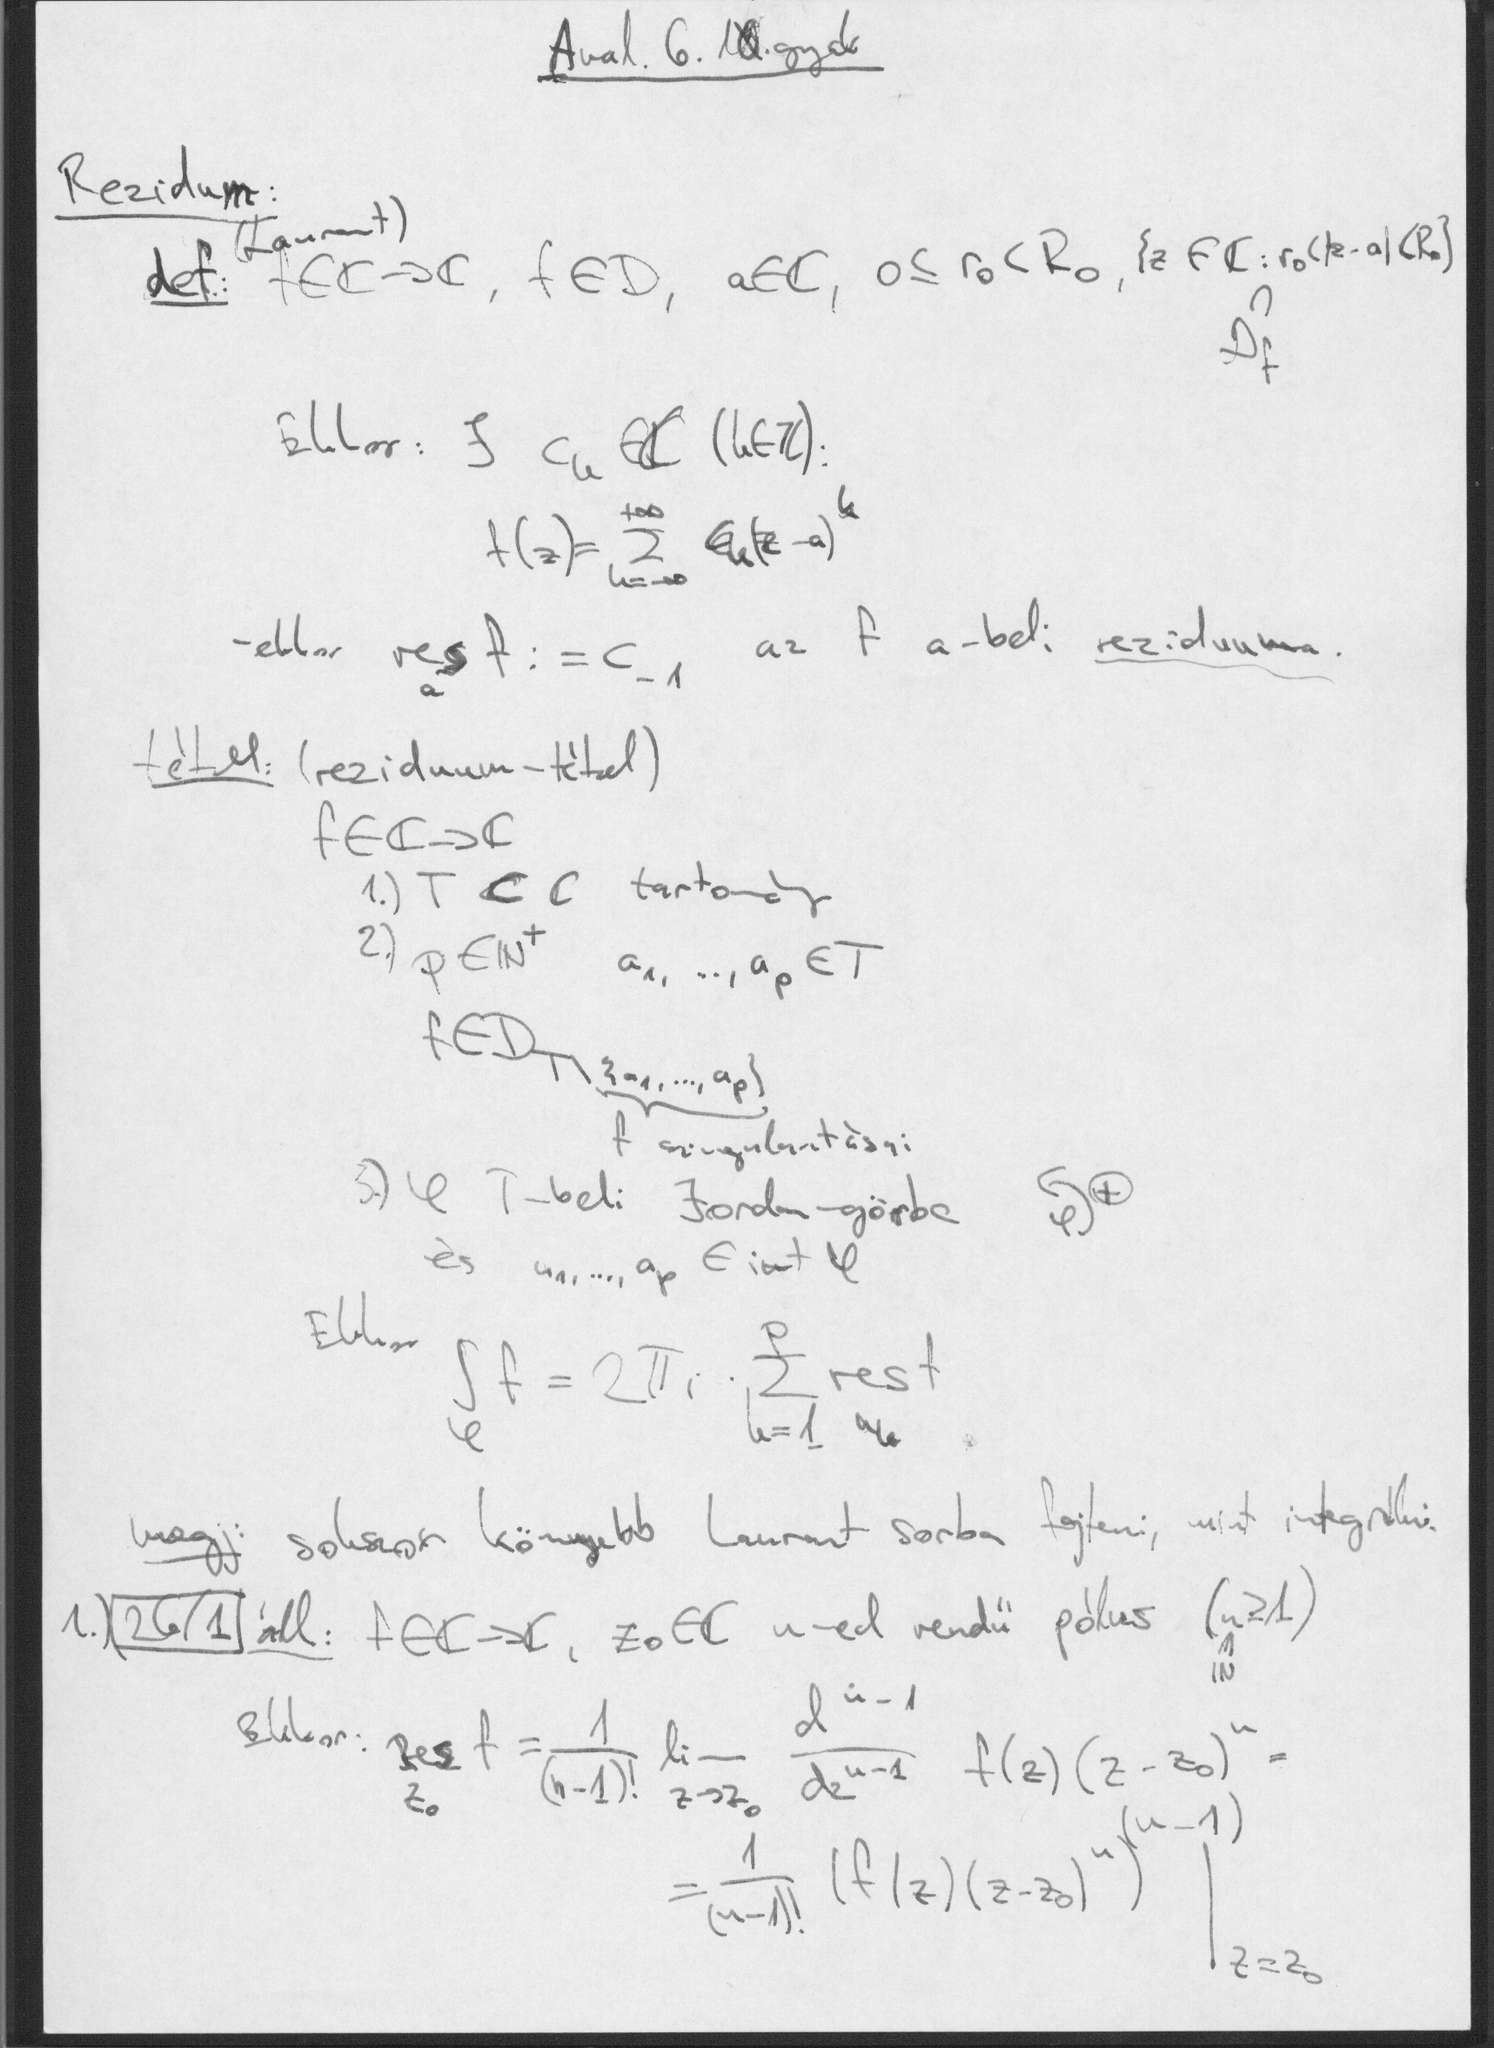 Anal. 6. gyak
Rezidum:
(Laurent)
def.: f∈ℂ→ℂ, f∈D, a∈ℂ, 0≤r₀<R₀, {z∈ℂ: r₀<|z-a|<R₀}
∩
D_f
Ekkor: ∃ c_k ∈ℂ (k∈ℤ):
f(z)= ∑_{k=-∞}^{+∞} c_k(z-a)^k
-ekkor res_a f := c_{-1} az f a-beli reziduuma.
tétel: (reziduum-tétel)
f∈ℂ→ℂ
1.) T ⊂ ℂ tartomány
2.) p∈ℕ⁺ a₁, ..., a_p ∈T
f∈D_{T\{a₁, ..., a_p}}
f szingularitásai
3.) φ T-beli Jordan-görbe φ ⊕
és a₁, ..., a_p ∈ int φ
Ekkor ∫_φ f = 2πi · ∑_{k=1}^{p} res_{a_k} f
megj: sokszor könnyebb Laurent sorba fejteni, mint integrálni.
1.) 26/1 áll: f∈ℂ→ℂ, z₀∈ℂ n-ed rendű pólus (n≥1)
ℕ
Ekkor: Res_{z₀} f = \frac{1}{(n-1)!} lim_{z→z₀} \frac{d^{n-1}}{dz^{n-1}} f(z)(z-z₀)^n =
= \frac{1}{(n-1)!} (f(z)(z-z₀)^n)^{(n-1)} |_{z=z₀}